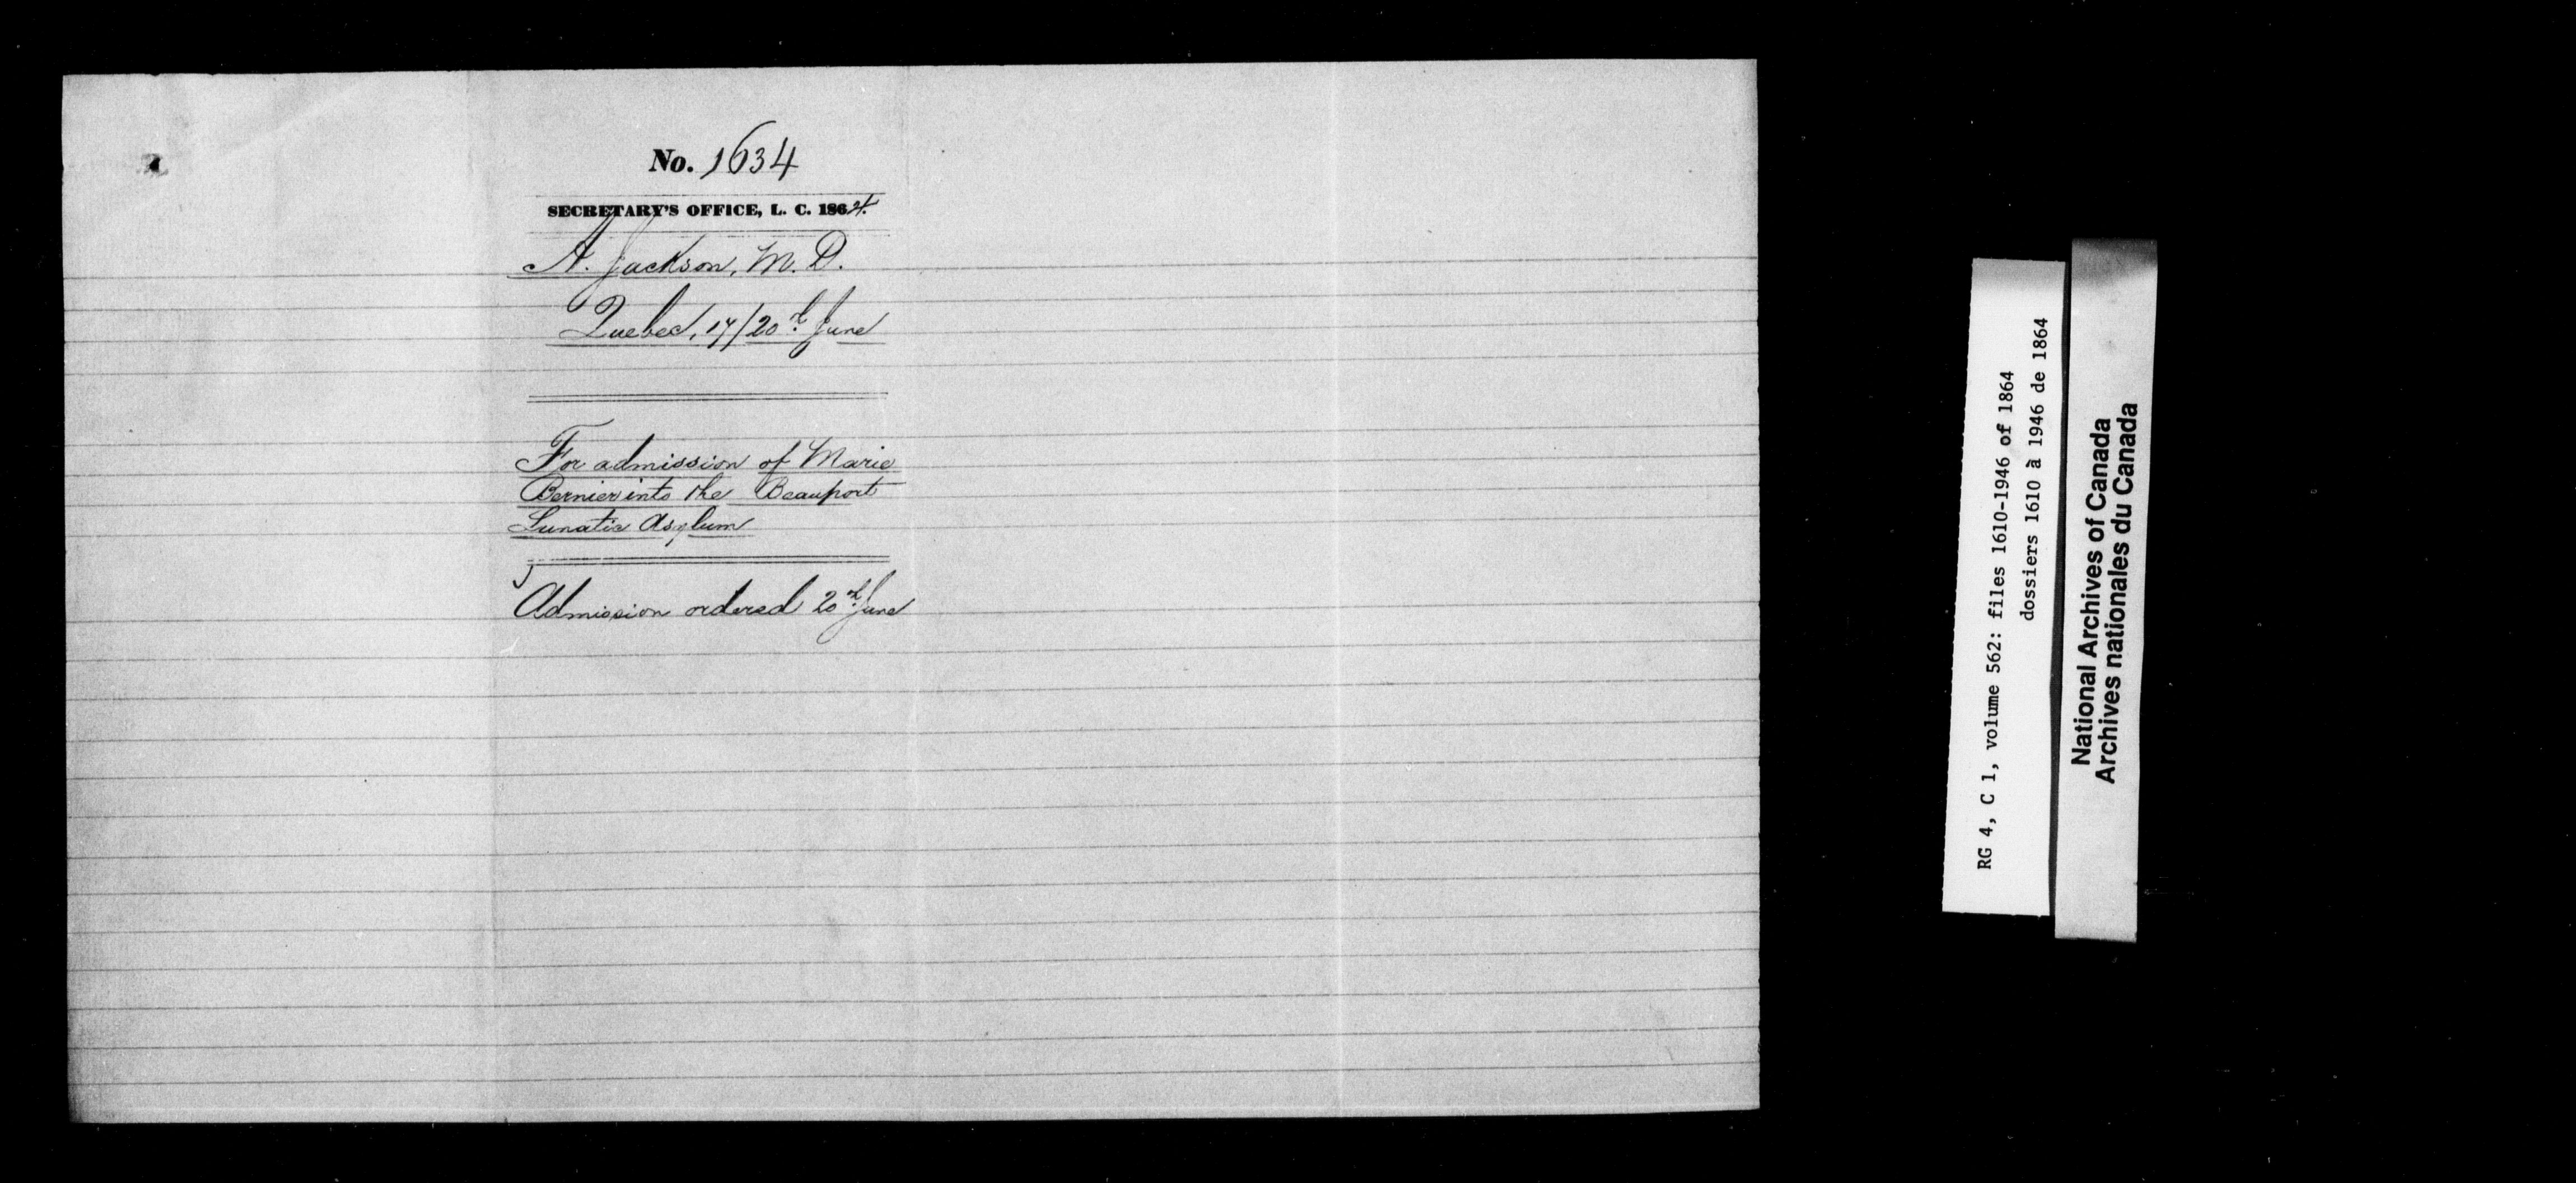 No. 1634
SECRETARY'S OFFICE, L. C. 1864.
A. Jackson, M. D.
Quebec, 17/20th June
For admission of Marie
Bernier into the Beauport
Lunatic Asylum
Admission ordered 20th June
RG 4, C 1, volume 562: files 1610-1946 of 1864
dossiers 1610 à 1946 de 1864
National Archives of Canada
Archives nationales du Canada